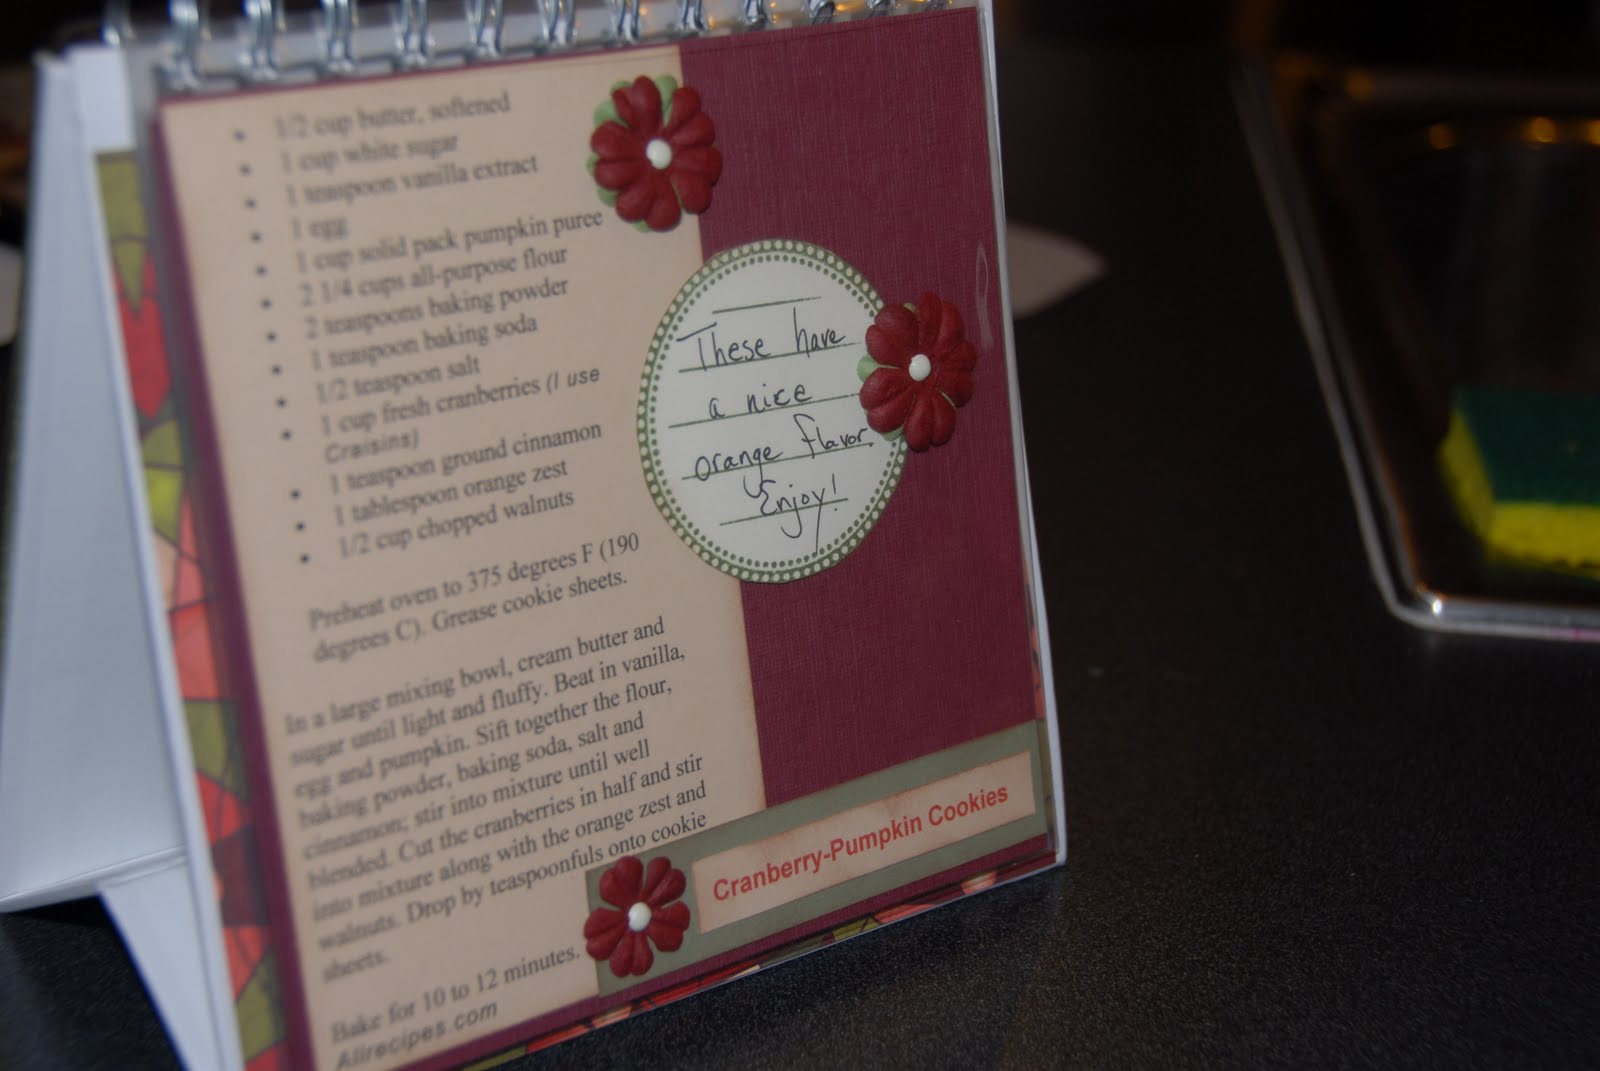 1/2 cup butter, softened
1 cup white sugar
1 teaspoon vanilla extract
1 egg
1 cup solid pack pumpkin puree
2 1/4 cups all-purpose flour
2 teaspoons baking powder
1 teaspoon baking soda
1/2 teaspoon salt
1 cup fresh cranberries (I use
Craisins)
1 teaspoon ground cinnamon
1 tablespoon orange zest
1/2 cup chopped walnuts
Preheat oven to 375 degrees F (190
degrees C). Grease cookie sheets.
In a large mixing bowl, cream butter and
sugar until light and fluffy. Beat in vanilla,
egg and pumpkin. Sift together the flour,
baking powder, baking soda, salt and
cinnamon; stir into mixture until well
blended. Cut the cranberries in half and stir
into mixture along with the orange zest and
walnuts. Drop by teaspoonfuls onto cookie
sheets.
Bake for 10 to 12 minutes.
Allrecipes.com
These have
a nice
orange flavor.
Enjoy!
Cranberry-Pumpkin Cookies